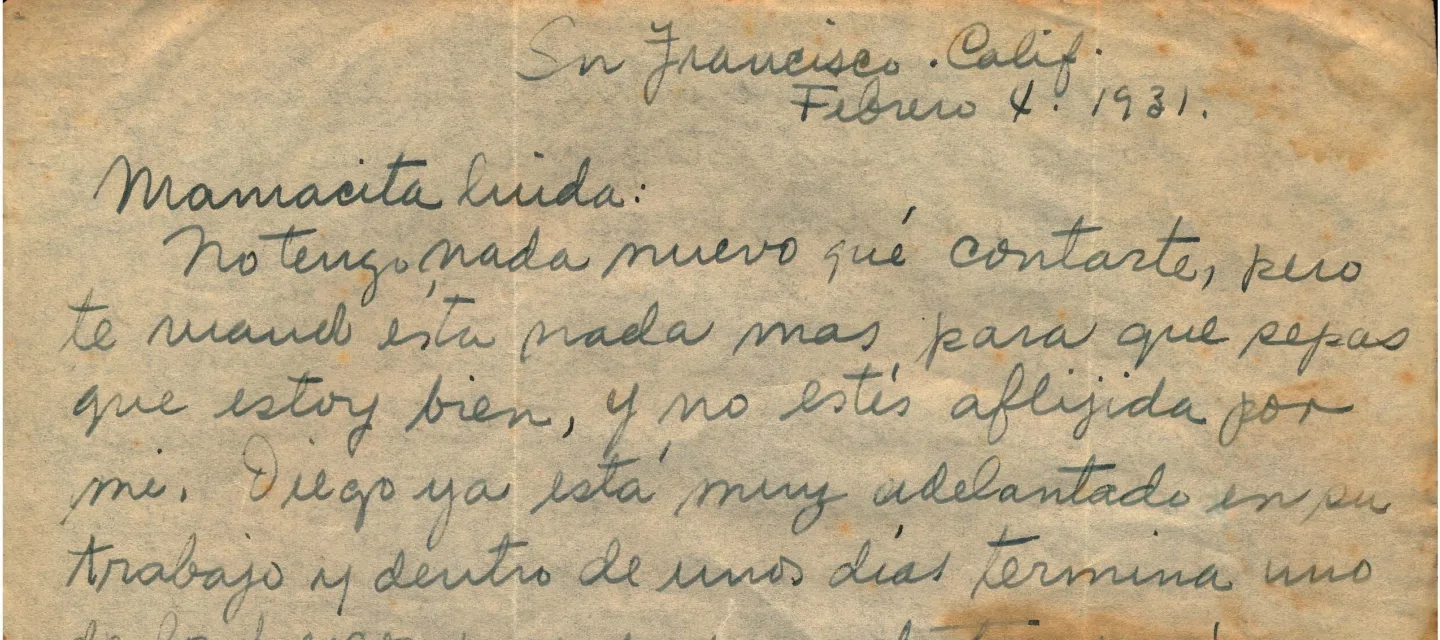 Sn Francisco. Calif.
Febrero 4. 1931.
Mamacita linda:
No tengo nada nuevo qué contarte, pero
te mando ésta nada mas para que sepas
que estoy bien, y no estés aflijida por
mi. Diego ya está muy adelantado en su
trabajo y dentro de unos días termina uno
de los